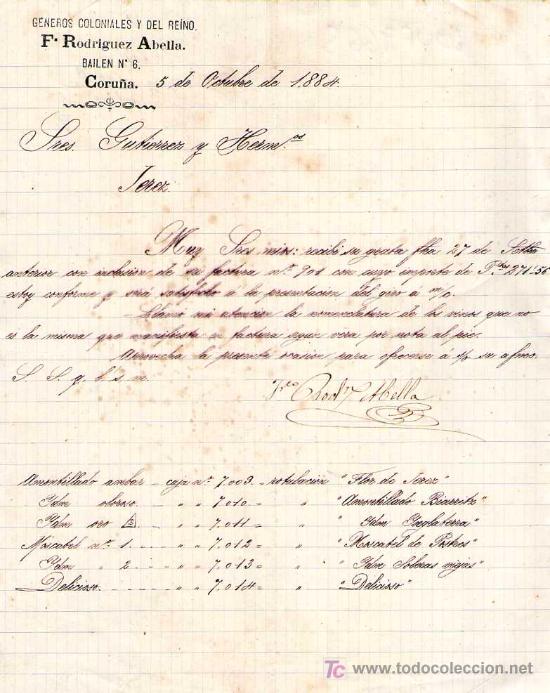 GENEROS COLONIALES Y DEL REÍNO.
Fº Rodriguez Abella.
BAILEN Nº 6.
Coruña. 5 de Octubre de 1884.
Sres. Gutierrez y Hermnos
Jerez
Muy Sres. mios: recibí su grata fha 27 de Setbe
anterior con inclusion de su factura nº 901 con cuyo importe de Ptas 271.55
estoy conforme y será satisfecho a la presentacion del giro a m/c.
Llamó mi atencion la nomenclatura de los vinos que no
es la misma que manifiesta su factura segun vera por nota al pie.
Aprovecha la presente ocasion para ofrecerse a Vs su afmo.
S. S. q. b. s. m.
Fco Rodz Abella
Amontillado ambar - caja nº 7,003 - rotulacion "Flor de Jerez"
Idm oloroso - " " 7,010 - " "Amontillado Biarritz"
Idm oro - " " 7,011 - " "Idm Inglaterra"
Moscatel nº 1 - " " 7,012 - " "Moscatel de Postres"
Idm " 2 - " " 7,013 - " "Idm Soleras viejas"
Delicioso - " " 7,014 - " "Delicioso"
TC www.todocoleccion.net